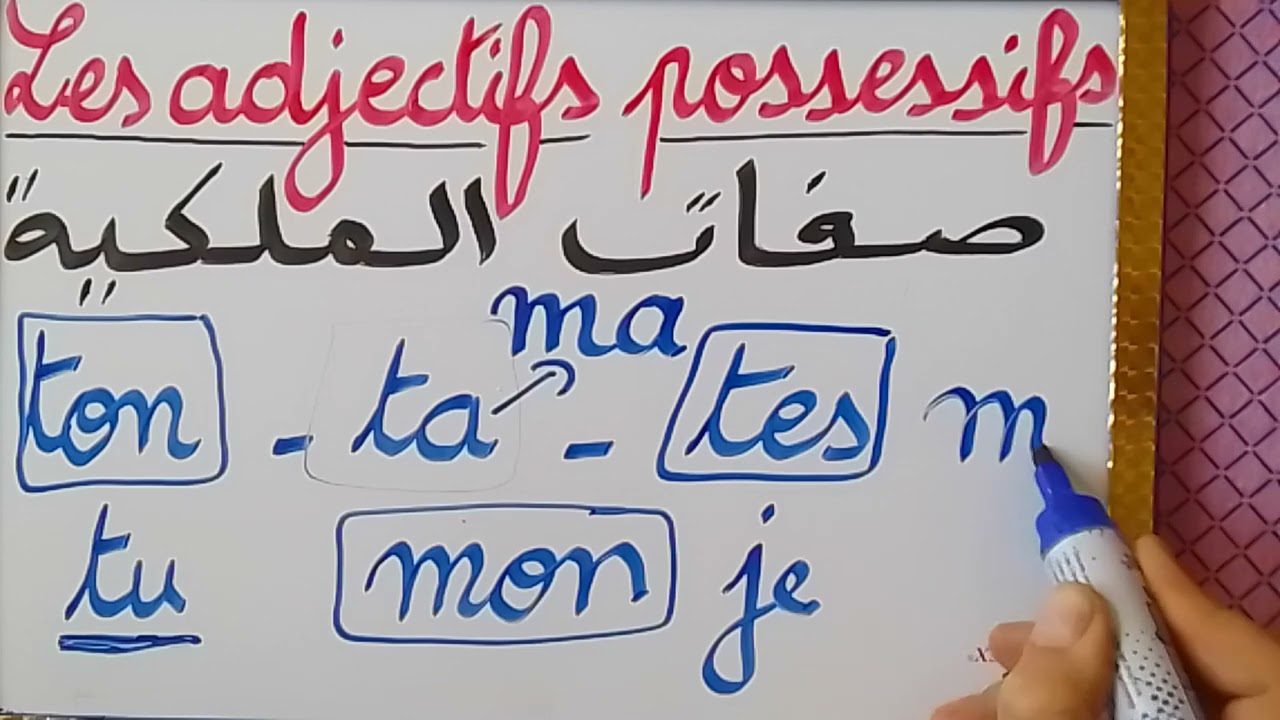 Les adjectifs possessifs
صفات الملكية
ma
ton - ta - tes m
tu mon je